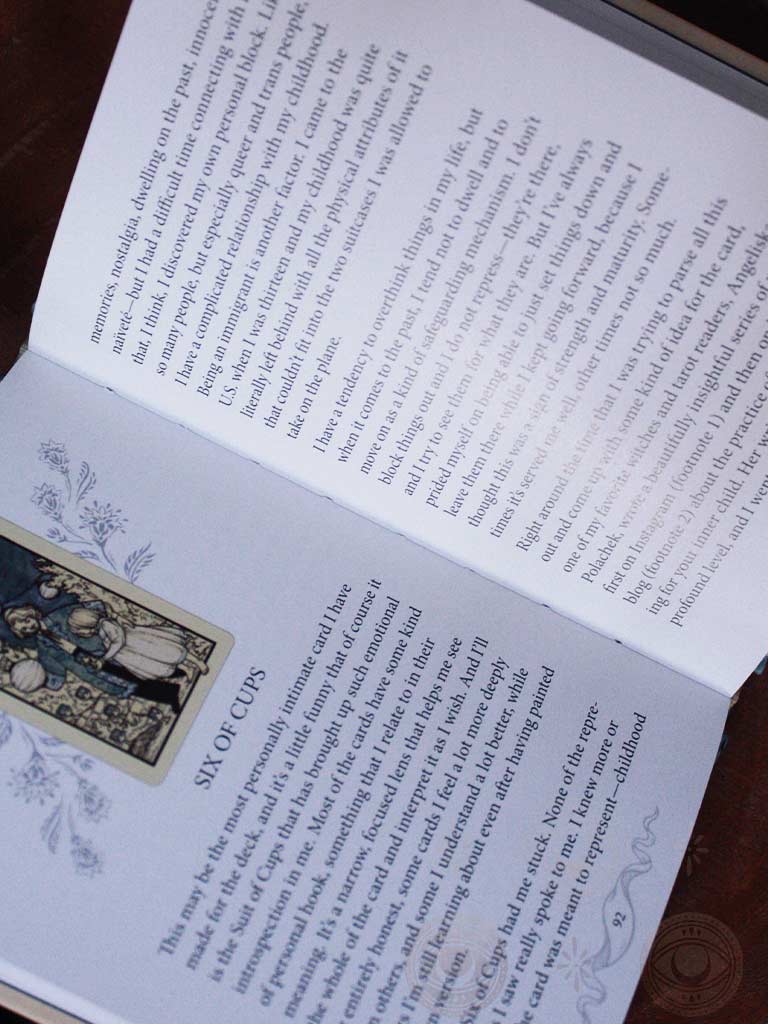 SIX OF CUPS
This may be the most personally intimate card I have
made for the deck, and it's a little funny that of course it
is the Suit of Cups that has brought up such emotional
introspection in me. Most of the cards have some kind
of personal hook, something that I relate to in their
meaning. It's a narrow, focused lens that helps me see
the whole of the card and interpret it as I wish. And I'll
entirely honest, some cards I feel a lot more deeply
others, and some I understand a lot better, while
I'm still learning about even after having painted
version.
Six of Cups had me stuck. None of the repre-
I saw really spoke to me. I knew more or
the card was meant to represent—childhood
92
memories, nostalgia, dwelling on the past, innocen
naiveté—but I had a difficult time connecting with
that, I think, I discovered my own personal block. Li
so many people, but especially queer and trans people,
I have a complicated relationship with my childhood.
Being an immigrant is another factor. I came to the
U.S. when I was thirteen and my childhood was quite
literally left behind with all the physical attributes of it
that couldn't fit into the two suitcases I was allowed to
take on the plane.
I have a tendency to overthink things in my life, but
when it comes to the past, I tend not to dwell and to
move on as a kind of safeguarding mechanism. I don't
block things out and I do not repress—they're there,
and I try to see them for what they are. But I've always
prided myself on being able to just set things down and
leave them there while I kept going forward, because I
thought this was a sign of strength and maturity. Some-
times it's served me well, other times not so much.
Right around the time that I was trying to parse all this
out and come up with some kind of idea for the card,
one of my favorite witches and tarot readers, Angeliska
Polachek, wrote a beautifully insightful series of
first on Instagram (footnote 1) and then on
blog (footnote 2) about the practice of
ing for your inner child. Her w
profound level, and I went